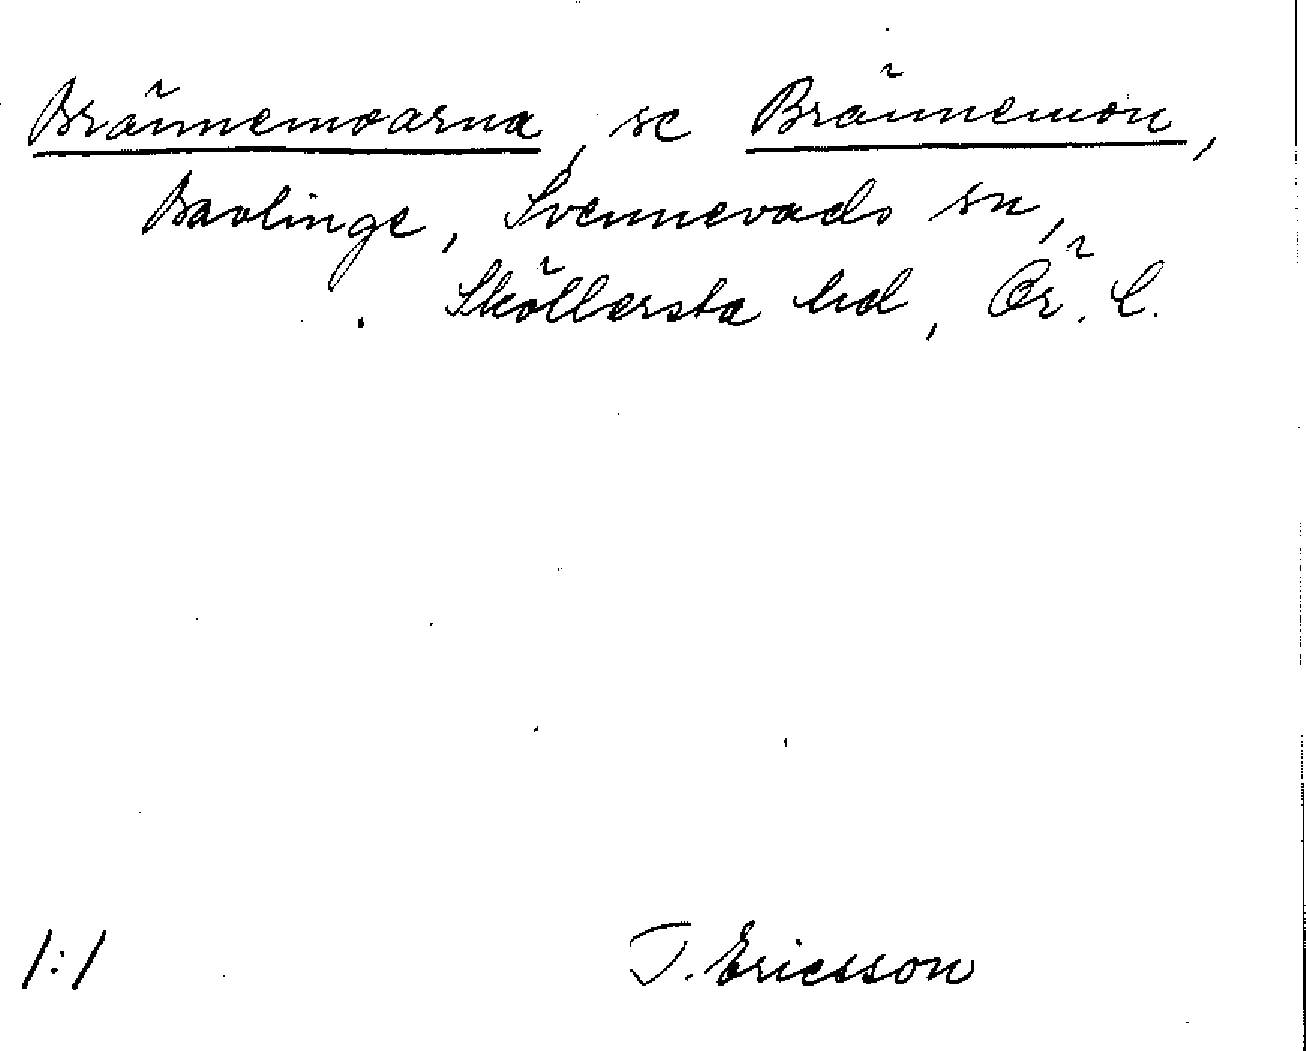 Brännemoarna, se Brännemon,
Bavlinge, Svennevads sn,
Sköllersta hd, Ör. l.
1:1
T. Ericsson